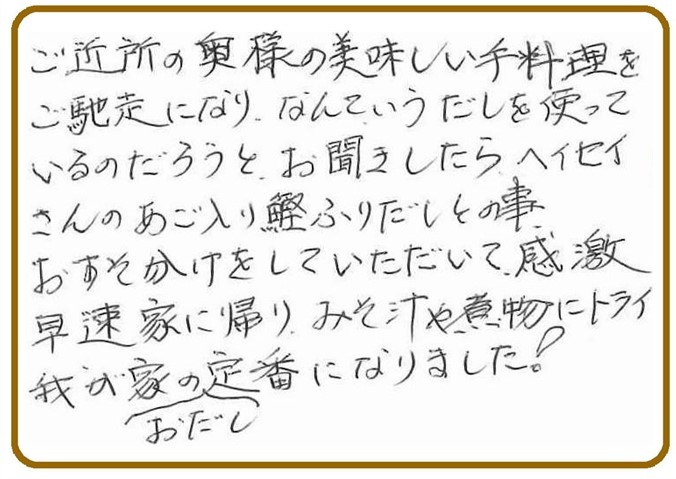 ご近所の奥様の美味しい手料理を
ご馳走になり、なんていうだしを使って
いるのだろうと、お聞きしたら、ヘイセイ
さんのあご入り鰹ふりだしとの事、
おすそ分けをしていただいて、感激
早速家に帰り、みそ汁や煮物にトライ
我が家の定番になりました!
おだし